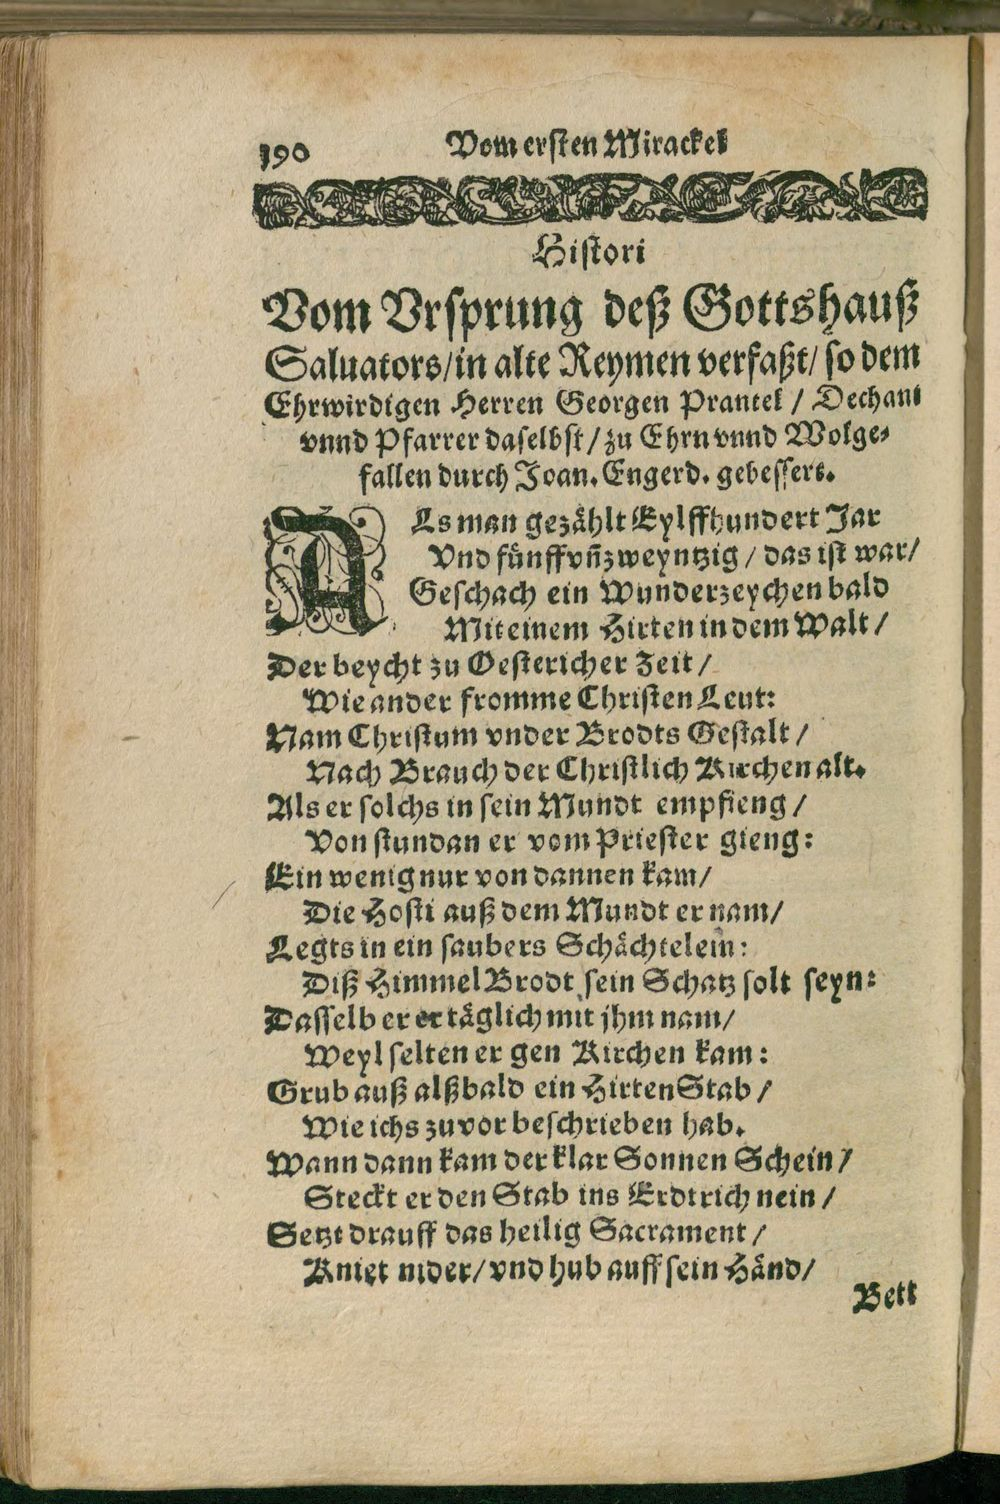 190 Vom ersten Mirackel
Histori
Vom Vrsprung deß Gottshauß
Saluators/ in alte Reymen verfaßt/ so dem
Ehrwirdigen Herren Georgen Prantel / Dechant
vnnd Pfarrer daselbst / zu Ehrn vnnd Wolge⸗
fallen durch Joan. Engerd. gebessert.
ALs man gezählt Eylffhundert Jar
Vnd fünff vñ zweyntzig / das ist war/
Geschach ein Wunderzeychen bald
Mit einem Hirten in dem Walt /
Der beycht zu Oestericher Zeit /
Wie ander fromme Christen Leut:
Nam Christum vnder Brodts Gestalt /
Nach Brauch der Christlich Kirchen alt.
Als er solchs in sein Mundt empfieng /
Von stundan er vom Priester gieng:
Ein wenig nur von dannen kam/
Die Hosti auß dem Mundt er nam/
Legts in ein saubers Schächtelein:
Diß Himmel Brodt sein Schatz solt seyn:
Dasselb er er täglich mit jhm nam/
Weyl selten er gen Kirchen kam:
Grub auß alßbald ein Hirten Stab /
Wie ichs zuvor beschrieben hab.
Wann dann kam der klar Sonnen Schein /
Steckt er den Stab ins Erdtrich nein /
Setzt drauff das heilig Sacrament /
Kniet nider/ vnd hub auff sein Händ/
Bett